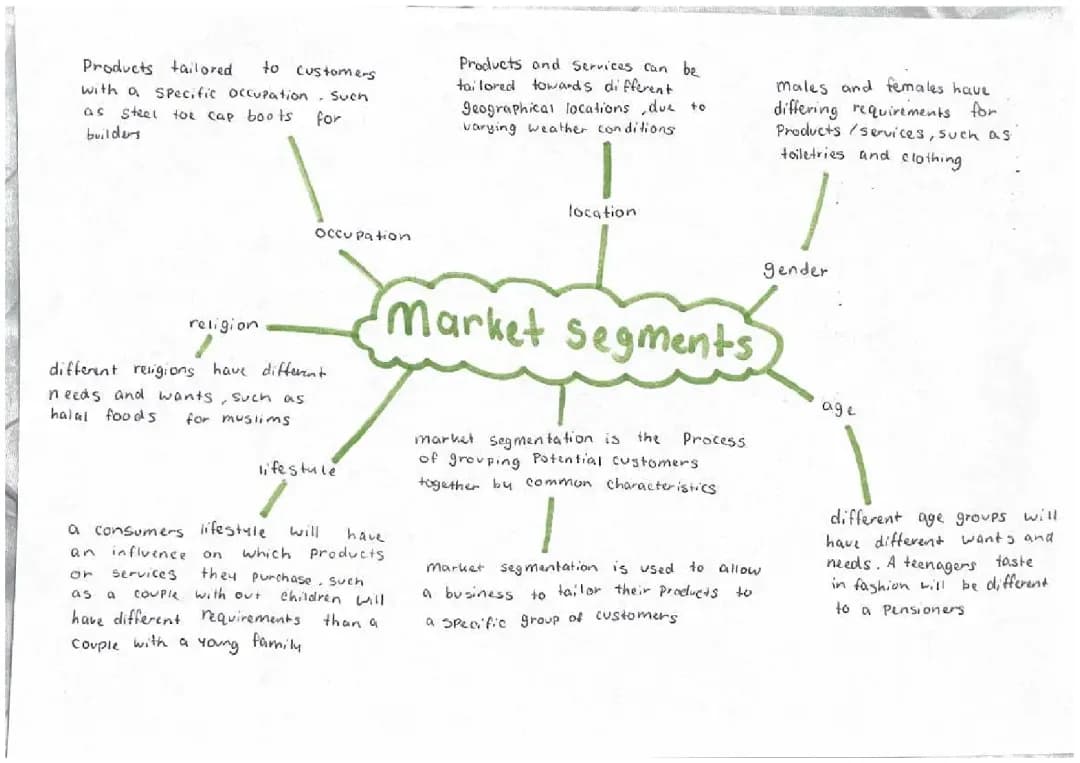 Products tailored to customers
with a specific occupation, such
as steel toe cap boots for
builders
occupation
Products and services can be
tailored towards different
geographical locations, due to
varying weather conditions
location
males and females have
differing requirements for
Products/services, such as
toiletries and clothing
gender
Market Segments
religion
different religions have different
needs and wants, such as
halal foods for muslims
lifestyle
a consumers lifestyle will have
an influence on which products
or services they purchase, such
as a couple with out children will
have different requirements than a
couple with a young family
market segmentation is the Process
of grouping Potential customers
together by common characteristics
market segmentation is used to allow
a business to tailor their products to
a specific group of customers
age
different age groups will
have different wants and
needs. A teenagers taste
in fashion will be different
to a pensioners